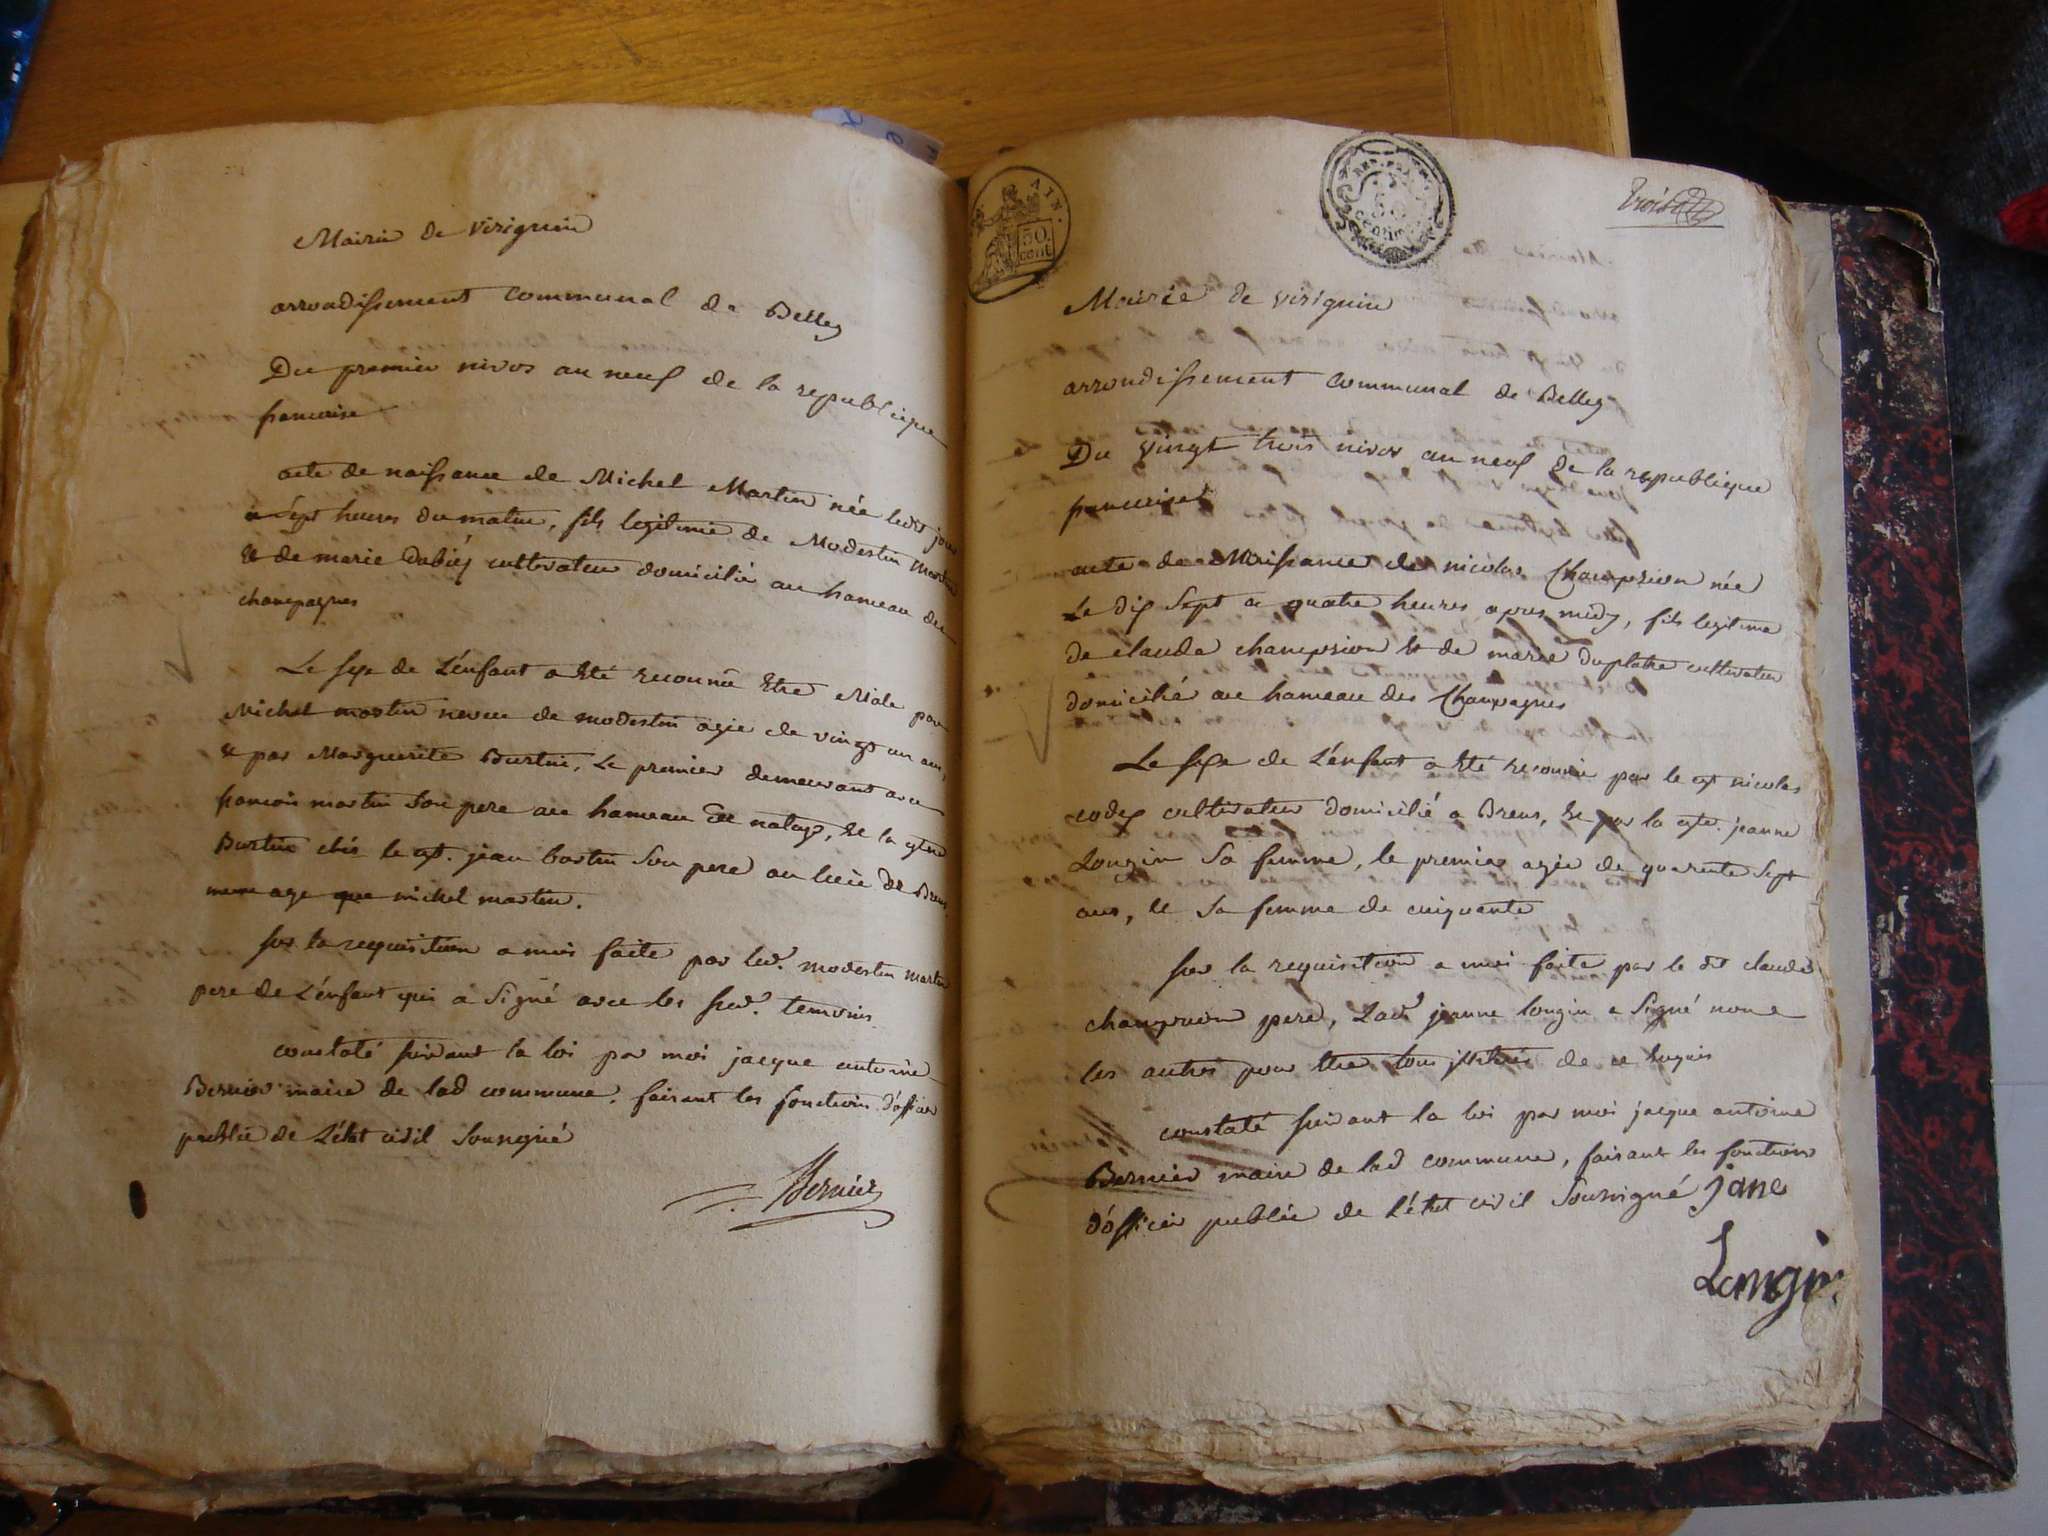 Mairie de virignin
arrondissement communal de Belley
Du premier nivos an neuf de la republique
francaise
acte de naissance de Michel Martin née ledit jour
a sept heures du matin, fils legitime de Modestin Martin
& de marie cultivateur domicilié au hameau des
champagnes
Le sexe de L'énfant a été reconnu être Male par
Michel martin neveu de modestin agée de vingt un ans,
& par Marguerite Burtin, Le premier demeurant avec
francois martin son pere au hameau de et la
Burtin chés le jean bartin son pere au lieu de Brens
meme age que michel martin.
sur la requisition a moi faite par led. modestin martin
pere de L'énfant qui a signé avec les sud. temoins
constaté suivant la loi par moi jacque antoine
Bernier maire de lad commune, faisant les fonctions d'officier
public de L'état civil soussigné
Bernier
AIN.
50
cent
REP. FRA
50
centimes
trois
Mairie de virignin
arrondissement communal de Belley
Du vingt trois nivos an neuf de la republique
francaise
acte de Naissance de nicolas Champrion née
Le dix sept a quatre heures apres midy, fils legitime
de claude champrion & de marie duplatre cultivateur
domicilié au hameau des Champagnes
Le sexe de L'énfant a été reconnu par le nicolas
codex cultivateur domicilié a Brens, & par la jeanne
Longin sa femme, le premier agée de quarente sept
ans, & sa femme de cinquante
sur la requisition a moi faite par le dit claude
champrion pere, Lad jeanne longin a signé non
les autres pour être tous de ce enquis
constaté suivant la loi par moi jacque antoine
Bernier maire de lad commune, faisant les fonctions
d'officier public de L'état civil soussigné jane
Longin